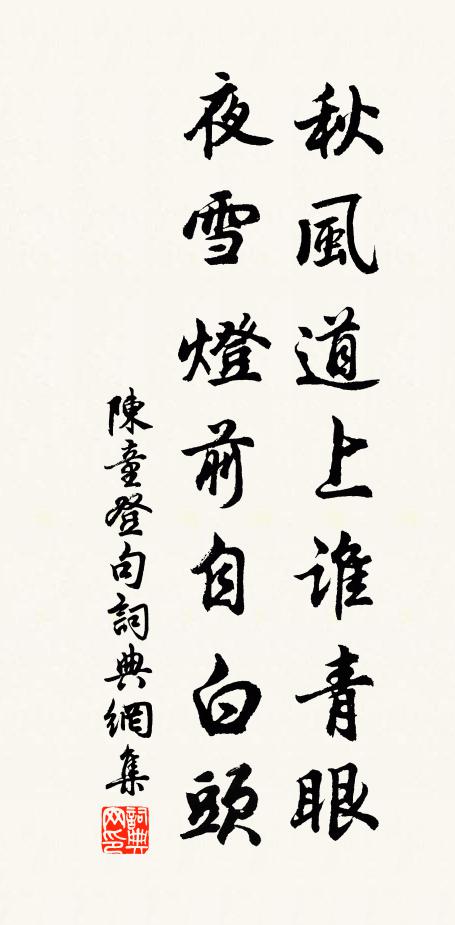 秋風道上誰青眼
夜雪燈前自白頭
陳童登句詞典網集
詞典
网印